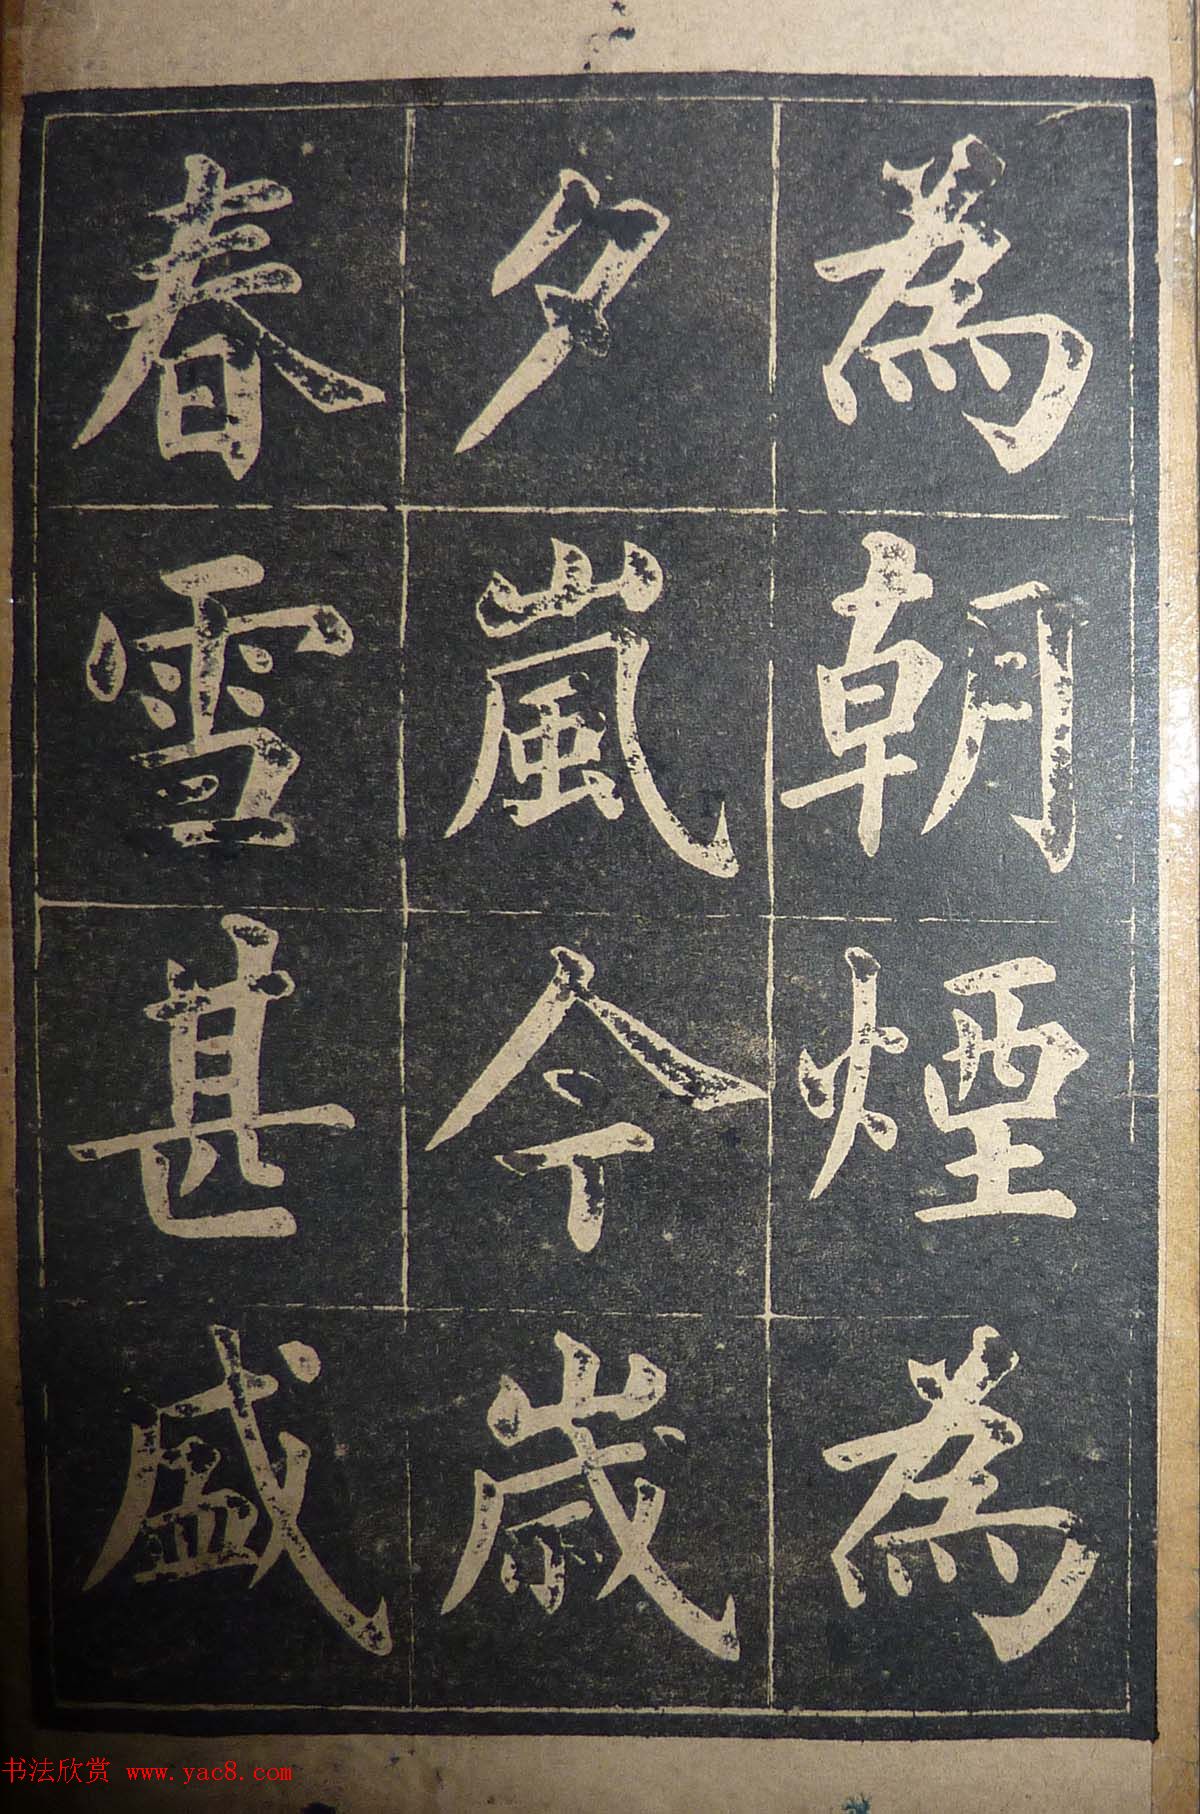 為朝煙為
夕嵐今歲
春雪甚盛
书法欣赏 www.yac8.com